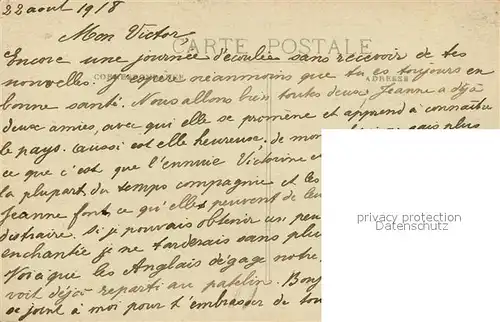 22 aout 1918
Mon Victor
CARTE POSTALE
Encore une journée d'écoulée sans recevoir de tes
nouvelles. J'espère néanmoins que tu es toujours en
CORRESPONDANCE
ADRESSE
bonne santé. Nous allons bien toutes deux, Jeanne a déjà
deux amies, avec qui elle se promène et apprend à connaître
le pays. Aussi est elle heureuse. de mon
ce que c'est que l'ennuie Victorine
la plupart du temps compagnie et les
privacy protection
Jeanne font ce qu'elles peuvent de
distraire. Si je pouvais obtenir un peu
enchantée je ne tarderais sans plu
Voià que les Anglais dégage notre
voit déjà reparti au patelin. Bon
se joint à moi pour t'embrasser de tou